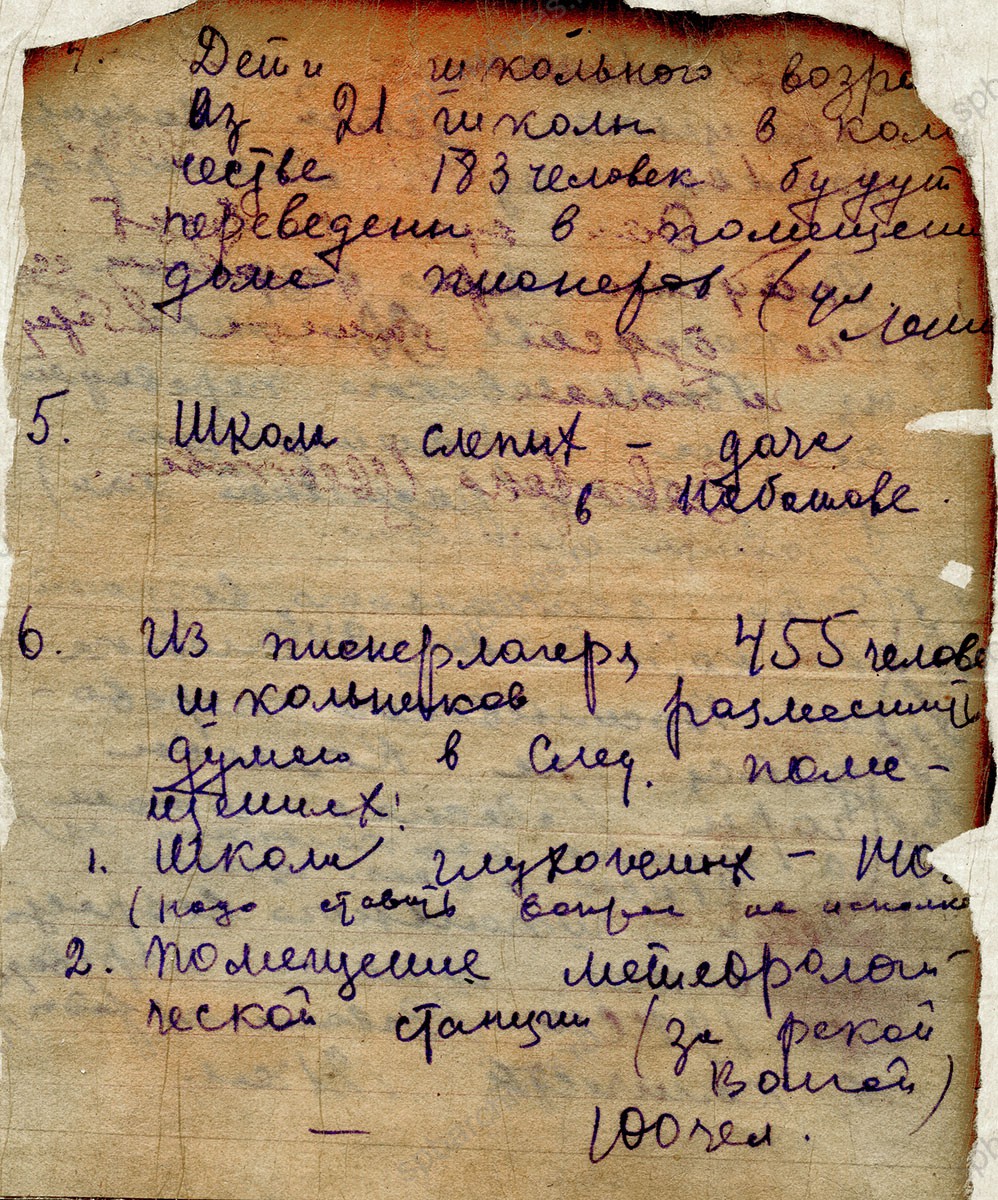 4. Дети школьного возра
из 21 школы в коли
честве 183 человек будут
переведены в помещени
дома пионеров (ул.
Лени
5. Школа слепых – дача
в
6. Из пионерлагеря 455 челове
школьников разместить
думаю в след. поме-
щениях:
1. Школа глухонемых – 140
(надо ставить вопрос на исполко
2. Помещение метеорологи
ческой станции (за рекой
Волгой)
— 100 чел.